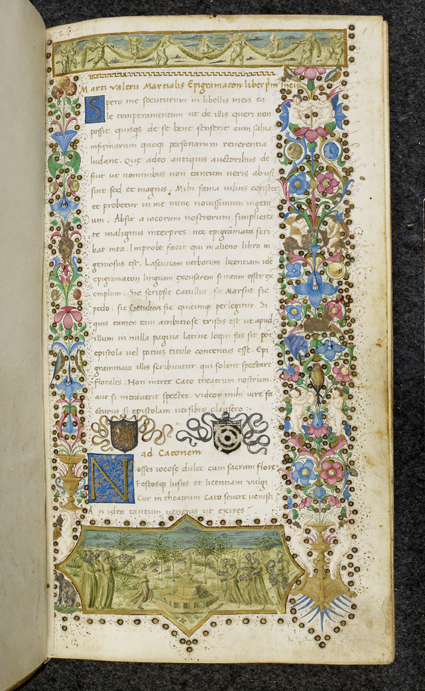 Marci Valerii Martialis Epigramaton liber prim incip
Spero me secuturum in libellis meis ta
le temperamentum ut de illis queri non
possit quisqs de se bene senserit cum salua
infimarum quoqs personarum reuerentia
ludant. Que adeo antiquis auctoribus de
fuit ut nominibus non tantum ueris abusi
sint sed et magnis. Mihi fama uilius constet
et probetur in me nouissimum ingeni
um. Absit a iocorum nostrorum simplicita
te malignus interpres: nec epigramata scri
bat mea. Improbe facit qui in alieno libro in
geniosus est. Lasciuam uerborum licentiam idest
epigramaton linguam excusarem si meum esset ex
emplum. Sic scripsit Catullus. sic Marsus. sic
pedo. sic Getulicus sic quicumqs perlegitur. Si
quis tamen tam ambitiose tristis est ut apud
illum in nulla pagina latine loqui fas sit pot
epistola uel potius titulo contentus esse. Epi
grammata illis scribuntur qui solent spectare
florales. Non intret Cato theatrum nostrum
aut si intrauerit spectet. Videor mihi iure fa
cturus si epistolam uersibus clausero.
ad Catonem
Nosses iocose dulce cum sacrum flore
Festosqs lusus et licentiam uulgi
Cur in theatrum Cato seuere uenisti
An ideo tantum ueneras ut exires